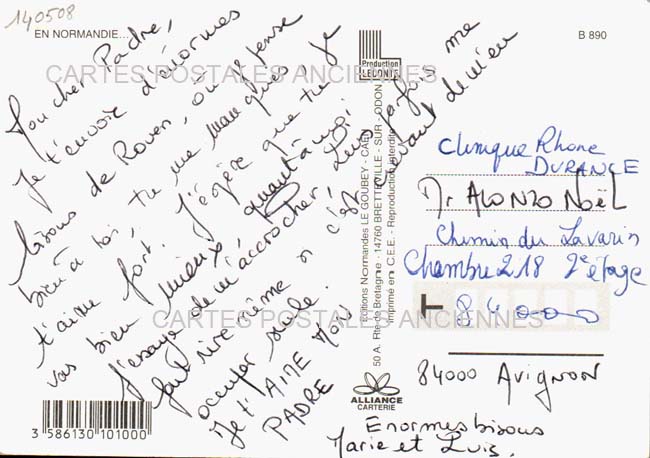 140508
EN NORMANDIE...
B 890
Production
LECONTE
CARTES POSTALES ANCIENNES
Mon cher Padre,
Je t'envoie d'énormes
bisous de Rouen, on pense
bien à toi, tu me manques, je
t'aime fort. J'espère que tu
vas bien mieux, quant à moi
J'essaye de m'accrocher, Luis parfois me
fait rire même si c'est devant de m'en
occuper seule.
Je t'AIME MON
PADRE
Editions Normandes LE GOUBEY - CAEN
50 A, Rte de Bretagne - 14760 BRETTEVILLE - SUR - ODON
Imprimé en C.E.E. - Reproduction interdite
Clinique Rhone
DURANCE
Mr ALONZO NOËL
Chemin du Lavarin
Chambre 218 2e étage
T 84000
CARTES POSTALES ANCIENNES
84000 Avignon
ALLIANCE
CARTERIE
Enormes bisous
Marie et Luis.
3 586130 101000